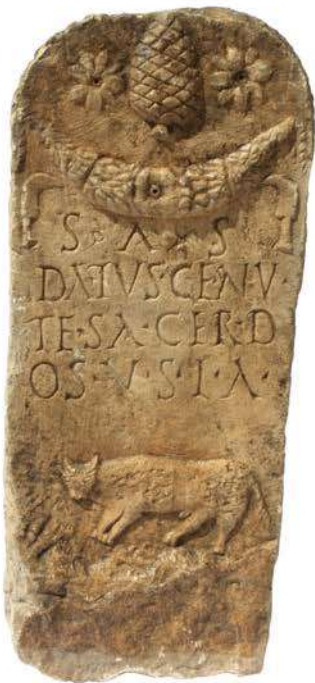 S A S
DATVS·CENV·
TE·SA·CERD
OS·V·S·L·A·